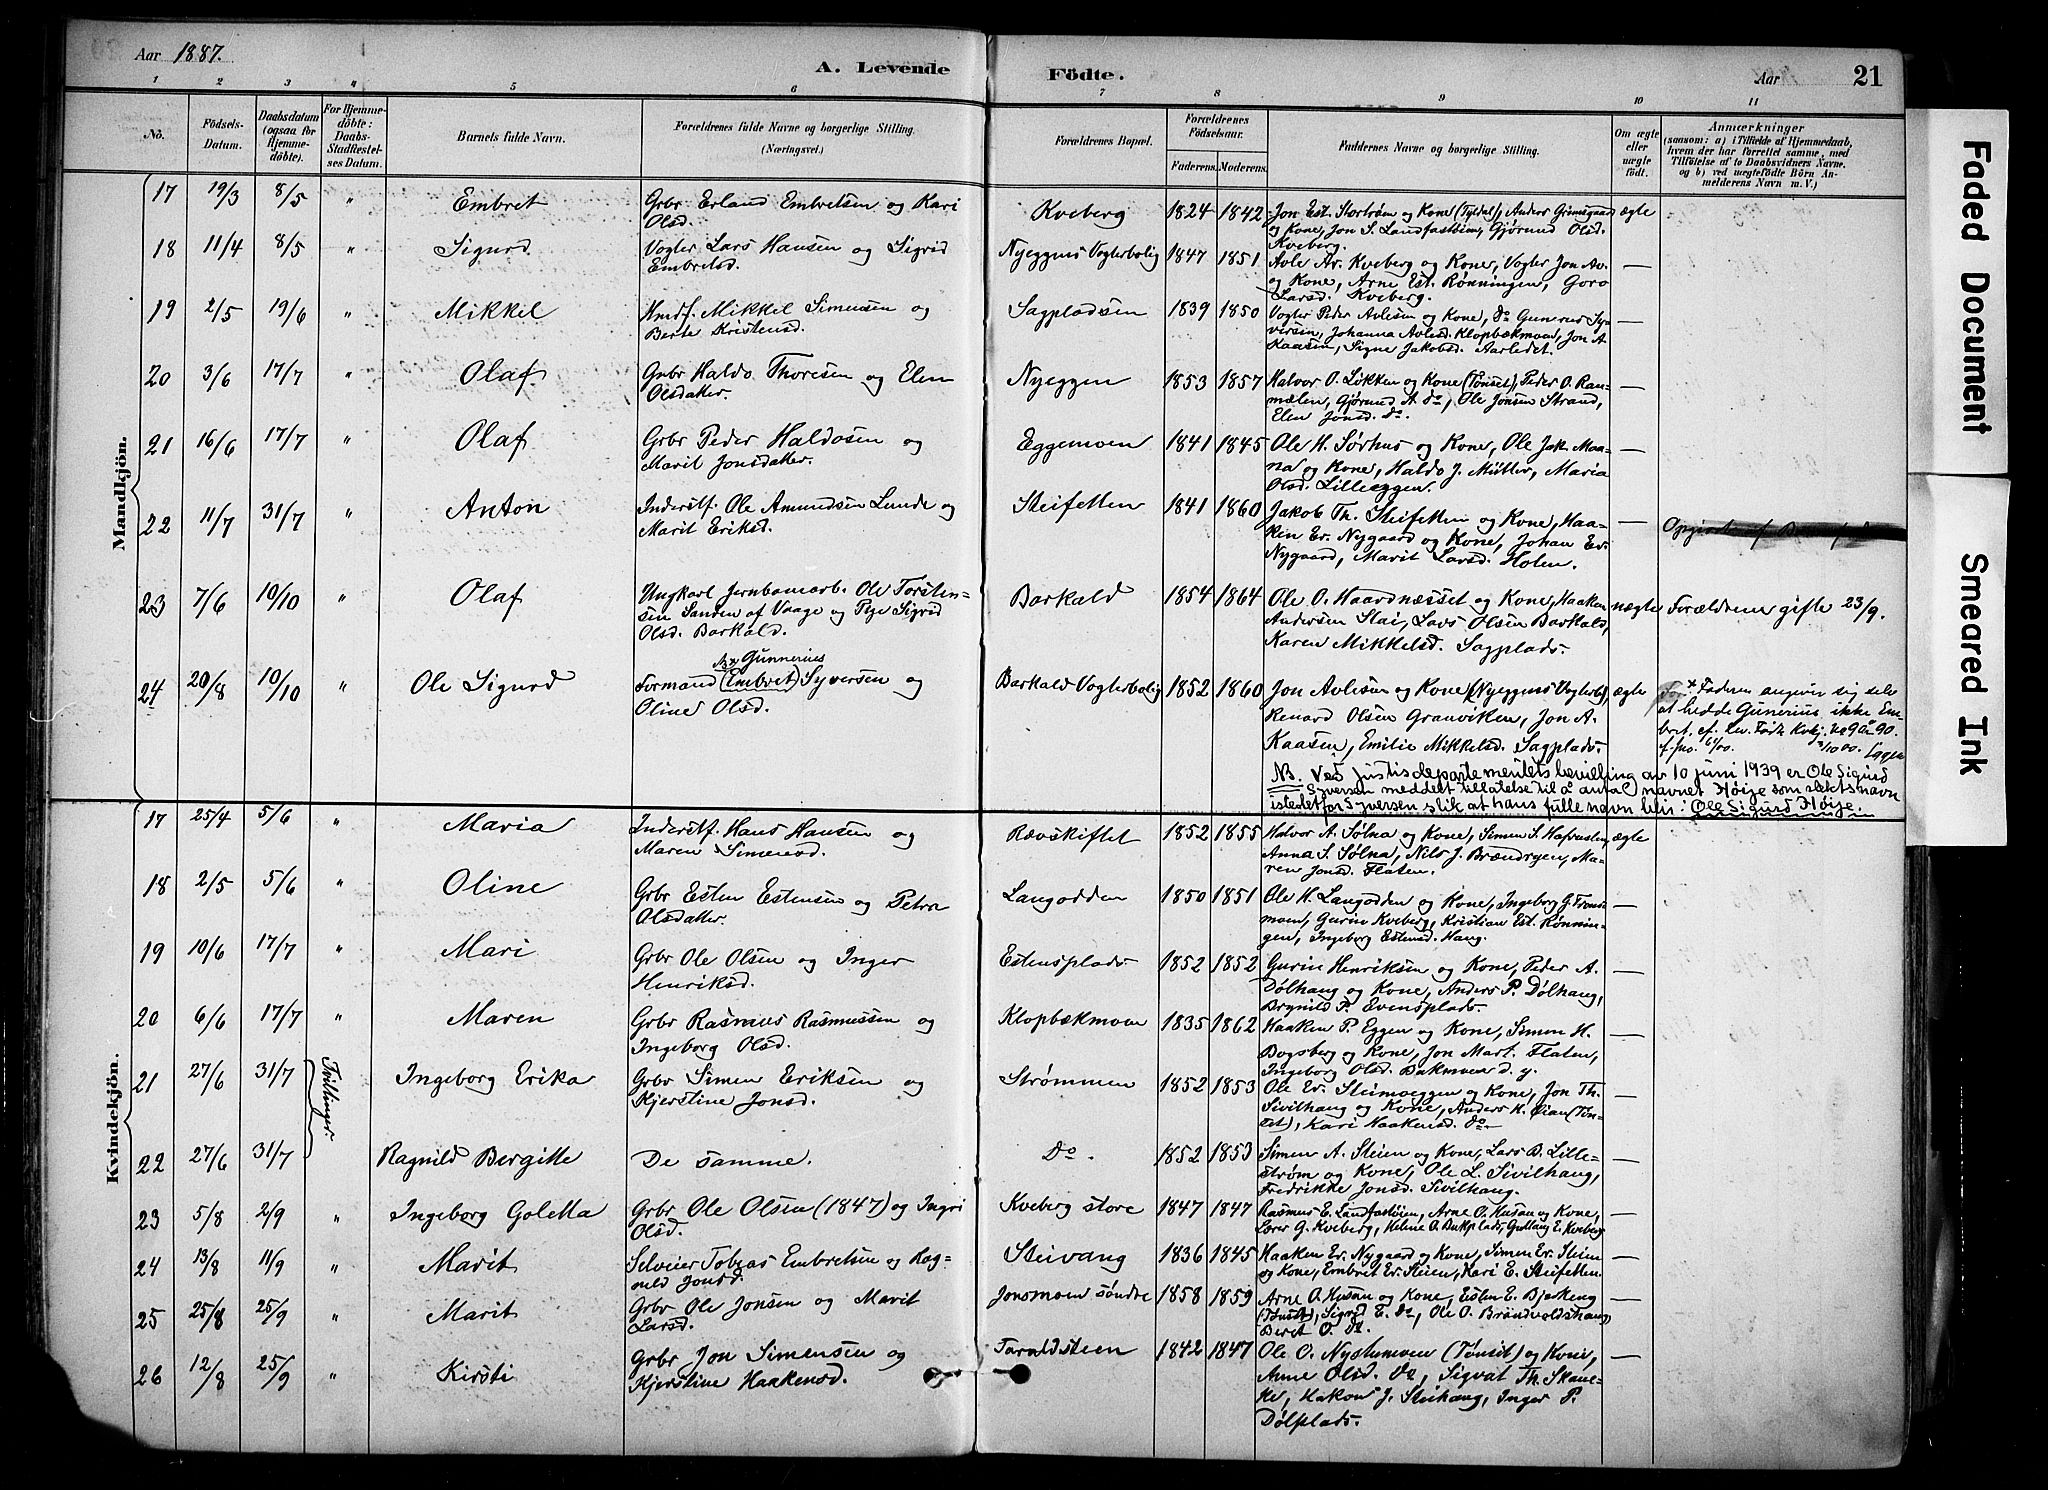 Aar 1887.
A. Levende Födte.
Aar
21
1 2 3 4 5 6 7 8 9 10 11
No.
Födsels-Datum.
Daabsdatum (ogsaa for Hjemmedöbte).
For Hjemmedöbte: Daabs-Stadfæstelses Datum.
Barnets fulde Navn.
Forældrenes fulde Navne og borgerlige Stilling. (Næringsvei.)
Forældrenes Bopæl.
Forældrenes Födselsaar.
Faderens. Moderens.
Faddernes Navne og borgerlige Stilling.
Om ægte eller uægte födt.
Anmærkninger
(saasom: a) i Tilfælde af Hjemmedaab, hvem der har forrettet samme, med Tilföielse af to Daabsvidners Navne. og b) ved uægtefödte Börn Anmelderens Navn m. V.)
Mandkjön.
17 19/3 8/5 " Embret Grbr Erland Embretsen og Kari Olsd. Kveberg 1824 1842 Jon Est. Stortrøm og Kone (Tyldal), Anders Grimsgaard og Kone, Jon S. Landfastøien, Gjørund Olsd. Kveberg. ægte
18 11/4 8/5 " Sigurd Vogter Lars Hansen og Sigrid Embretsd. Nyeggens Vogterbolig 1847 1851 Avle Ar. Kveberg og Kone, Vogter Jon Av. og Kone, Arne Est. Rønningen, Goro Larsd. Kveberg. —
19 2/5 19/6 " Mikkel Hmdf. Mikkel Simensen og Berte Kristensd. Sagpladsen 1839 1850 Vogter Peder Avlesen og Kone, do Gunerus Syversen, Johanna Avlesd. Klopbækmoen, Jon A. Kaasen, Signe Jakobsd. Aarledet. —
20 3/6 17/7 " Olaf Grbr Haldo Thoresen og Elen Olsdatter. Nyeggen 1853 1857 Halvor O. Løkken og Kone (Tønset), Peder O. Ranmælen, Gjørund A. do, Ole Jonsen Strand, Elen Jonsd. do. —
21 16/6 17/7 " Olaf Grbr Peder Haldosen og Marit Jonsdatter. Eggemoen 1841 1845 Ole H. Sørhus og Kone, Ole Jak. Moana og Kone, Haldo J. Müller, Maria Olsd. Lilleeggen. —
22 11/7 31/7 " Anton Inderstf. Ole Amundsen Lunde og Marit Eriksd. Steifetten 1841 1860 Jakob Th. Steifetten og Kone, Haaken Er. Nygaard og Kone, Johan Er. Nygaard, Marit Larsd. Holen. —
23 7/6 10/10 " Olaf Ungkarl Jernbanearb. Ole Torstensen Sanden af Vaage og Pige Sigrid Olsd. Barkald. Barkald 1854 1864 Ole O. Haardnæsset og Kone, Haaken Andersen Stai, Lars Olsen Barkald, Karen Mikkelsd. Sagplads. uægte Forældrene gifte 23/9.
24 20/8 10/10 " Ole Sigurd Formand (Embret) Nx Gunnerius Syversen og Oline Olsd. Barkald Vogterbolig 1852 1860 Jon Avlesen og Kone (Nyeggens Vogterb), Renard Olsen Granviken, Jon A. Kaasen, Emilie Mikkelsd. Sagplads. ægte x Faderen angiver sig selv at hedde Gunerius, ikke Embret. cf. Lev. Født Kvkj. No 9 Aar 90.
NB. Ved Justisdepartementets bevilling av 10 juni 1939 er Ole Sigurd
Syversen meddelt tillatelse til å anta navnet Høije som slektsnavn
istedetfor Syversen slik at hans fulle navn blir: Ole Sigurd Høije.
Kvindekjön.
17 25/4 5/6 " Maria Inderstf. Hans Hansen og Maren Simensd. Rævskiftet 1852 1855 Halvor A. Sølna og Kone, Simen S. Hafrusten, Anna S. Sølna, Nils J. Brændryen, Maren Jonsd. Flaten. ægte
18 2/5 5/6 " Oline Grbr Esten Estensen og Petra Olsdatter. Langodden 1850 1851 Ole H. Langodden og Kone, Ingeborg G. Tronsmoen, Gurin Kveberg, Kristian Est. Rønningen, Ingeborg Estensd. Haug. —
19 10/6 17/7 " Mari Grbr Ole Olsen og Inger Henriksd. Estensplads 1852 1852 Gurin Henriksen og Kone, Peder A. Dølhaug og Kone, Anders P. Dølhaug, Brynild P. Evensplads. —
20 6/6 17/7 " Maren Grbr Rasmus Rasmussen og Ingeborg Olsd. Klopbækmoen 1835 1862 Haaken P. Eggen og Kone, Simon H. Bogsberg og Kone, Jon Mart. Flaten, Ingeborg Olsd. Bakmoen d. y. —
21 27/6 31/7 Tvillinger Ingeborg Erika Grbr Simen Eriksen og Kjerstine Jonsd. Strømmen 1852 1853 Ole Er. Steimoeggen og Kone, Jon Th. Sivilhaug og Kone, Anders K. Øian (Tønset), Kari Haakensd. do —
22 27/6 31/7 Ragnild Bergitte De samme. Do. 1852 1853 Simen A. Steien og Kone, Lars B. Lillestrøm og Kone, Ole L. Sivilhaug, Fredrikke Jonsd. Sivilhaug. —
23 5/8 2/9 " Ingeborg Goletta Grbr Ole Olsen (1847) og Ingri Olsd. Kveberg store 1847 1847 Rasmus E. Landfastøien, Arne O. Husan og Kone, Lærer G. Kveberg, Helene O. Bakplads, Gullaug E. Kveberg —
24 13/8 11/9 " Marit Selveier Tobias Embretsen og Ragnild Jonsd. Steivang 1836 1845 Haaken Er. Nygaard og Kone, Simen Er. Steien og Kone, Embret Er. Steien, Kari E. Steifetten. —
25 25/8 25/9 " Marit Grbr Ole Jonsen og Marit Larsd. Jonsmoen søndre 1858 1859 Arne O. Husan og Kone, Esten E. Bjøkeng (Tønset), Sigrid E. do, Ole O. Brandvoldshaug, Beret O. do. —
26 12/8 25/9 " Kirsti Grbr Jon Simensen og Kjerstine Haakensd. Taraldsteen 1842 1847 Ole O. Nystumoen (Tønset) og Kone, Anne Olsd. do, Sigvat Th. Skancke, Hakon J. Steihaug, Inger P. Dølplads. —
Faded Document
Smeared Ink